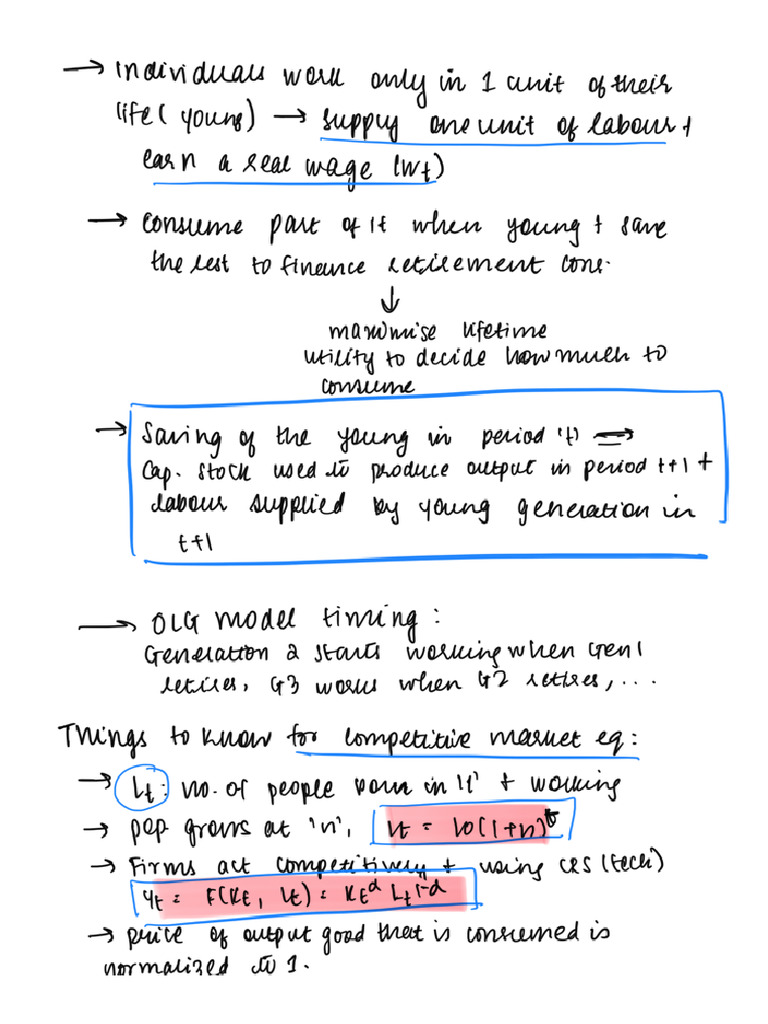 → Individuals work only in 1 unit of their
life (young) → supply one unit of labour +
earn a real wage (Wt)
→ Consume part of it when young + save
the rest to finance retirement cons.
↓
maximise lifetime
utility to decide how much to
consume
→ Saving of the young in period 't' ⇒
Cap. stock used to produce output in period t+1 +
labour supplied by young generation in
t+1
→ OLG model timing:
Generation 2 starts working when Gen 1
retires, G3 works when G2 retires, ...
Things to know for competitive market eq:
→ Lt: no. of people born in 't' + working
→ pop grows at 'n', Lt = L0(1+n)^t
→ Firms act competitively + using CRS (tech)
Yt = F(Kt, Lt) = Kt^α Lt^1-α
→ price of output good that is consumed is
normalized to 1.